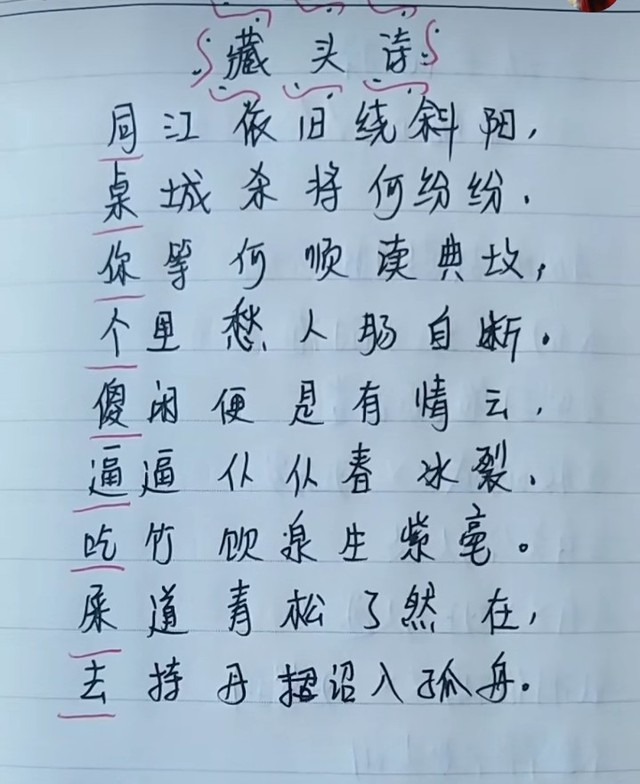 藏头诗
同江依旧绕斜阳，
桌城杀将何纷纷．
你等何顺读典坟，
个里愁人肠自断。
傻闲便是有情云，
逼逼仆仆春冰裂．
吃竹饮泉生紫毫。
屎道青松了然在，
去持丹诏入孤舟。